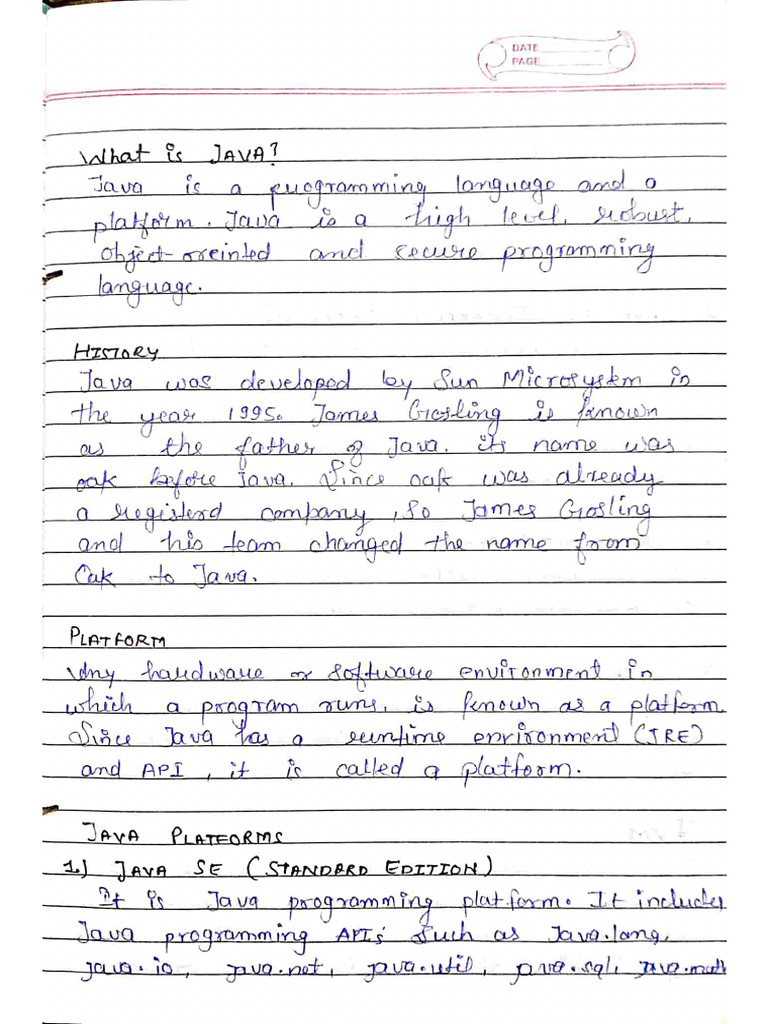 DATE
PAGE
What is JAVA?
Java is a programming language and a
platform. Java is a high level, robust,
object-oreinted and secure programming
language.
HISTORY
Java was developed by Sun Microsystem in
the year 1995. James Gosling is known
as the father of Java. its name was
oak before Java. Since oak was already
a registerd company, so James Gosling
and his team changed the name from
Oak to Java.
PLATFORM
Any hardware or software environment in
which a program runs, is known as a platform
Since Java has a runtime environment (JRE)
and API, it is called a platform.
JAVA PLATFORMS
1.) JAVA SE (STANDARD EDITION)
It is Java programming platform. It includes
Java programming API's such as Java.lang,
java.io, java.net, java.util, java.sql, java.math